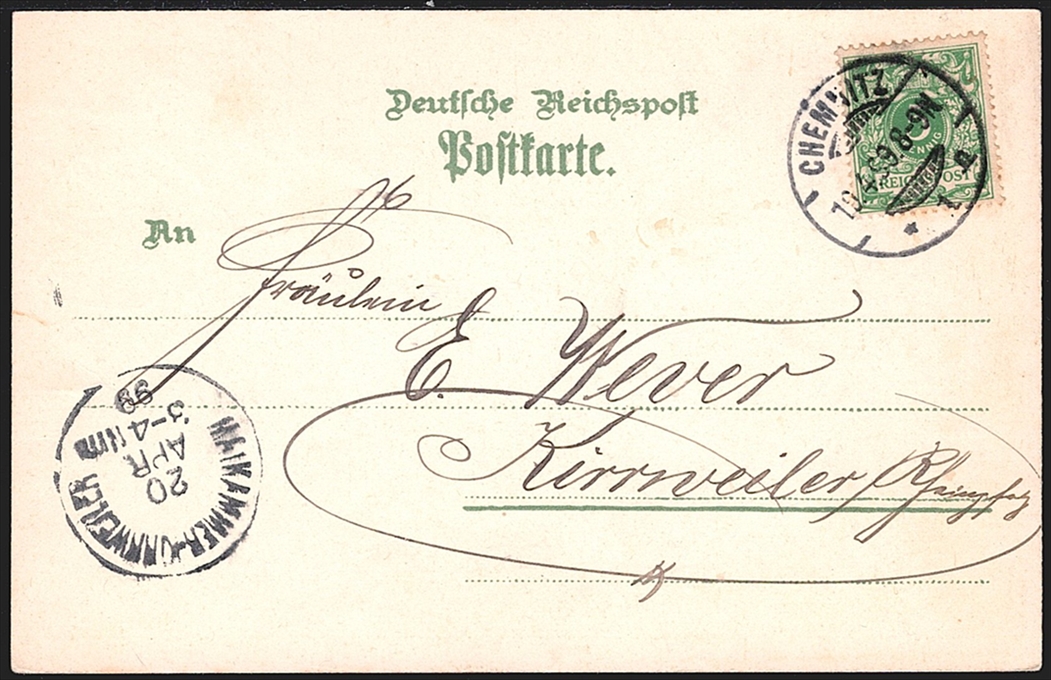 Deutsche Reichspost
Postkarte.
An
Fräulein
E. Wever
Kirrweiler, Rheinpfalz
CHEMNITZ
19.4.99. 8-9N
* 1 *
5
PFENNIG
REICHSPOST
MAIKAMMER-KIRRWEILER
20
APR
3-4 NM
99